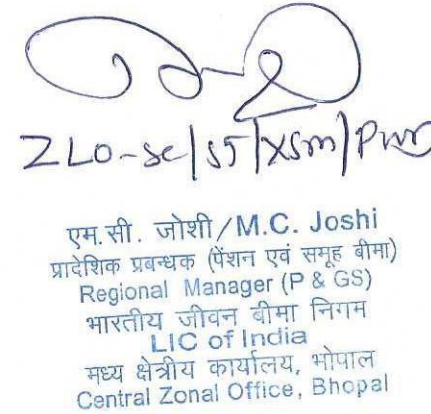 ZLO-se/SS/XSM/PWD
एम.सी. जोशी/M.C. Joshi
प्रादेशिक प्रबन्धक (पेंशन एवं समूह बीमा)
Regional Manager (P & GS)
भारतीय जीवन बीमा निगम
LIC of India
मध्य क्षेत्रीय कार्यालय, भोपाल
Central Zonal Office, Bhopal